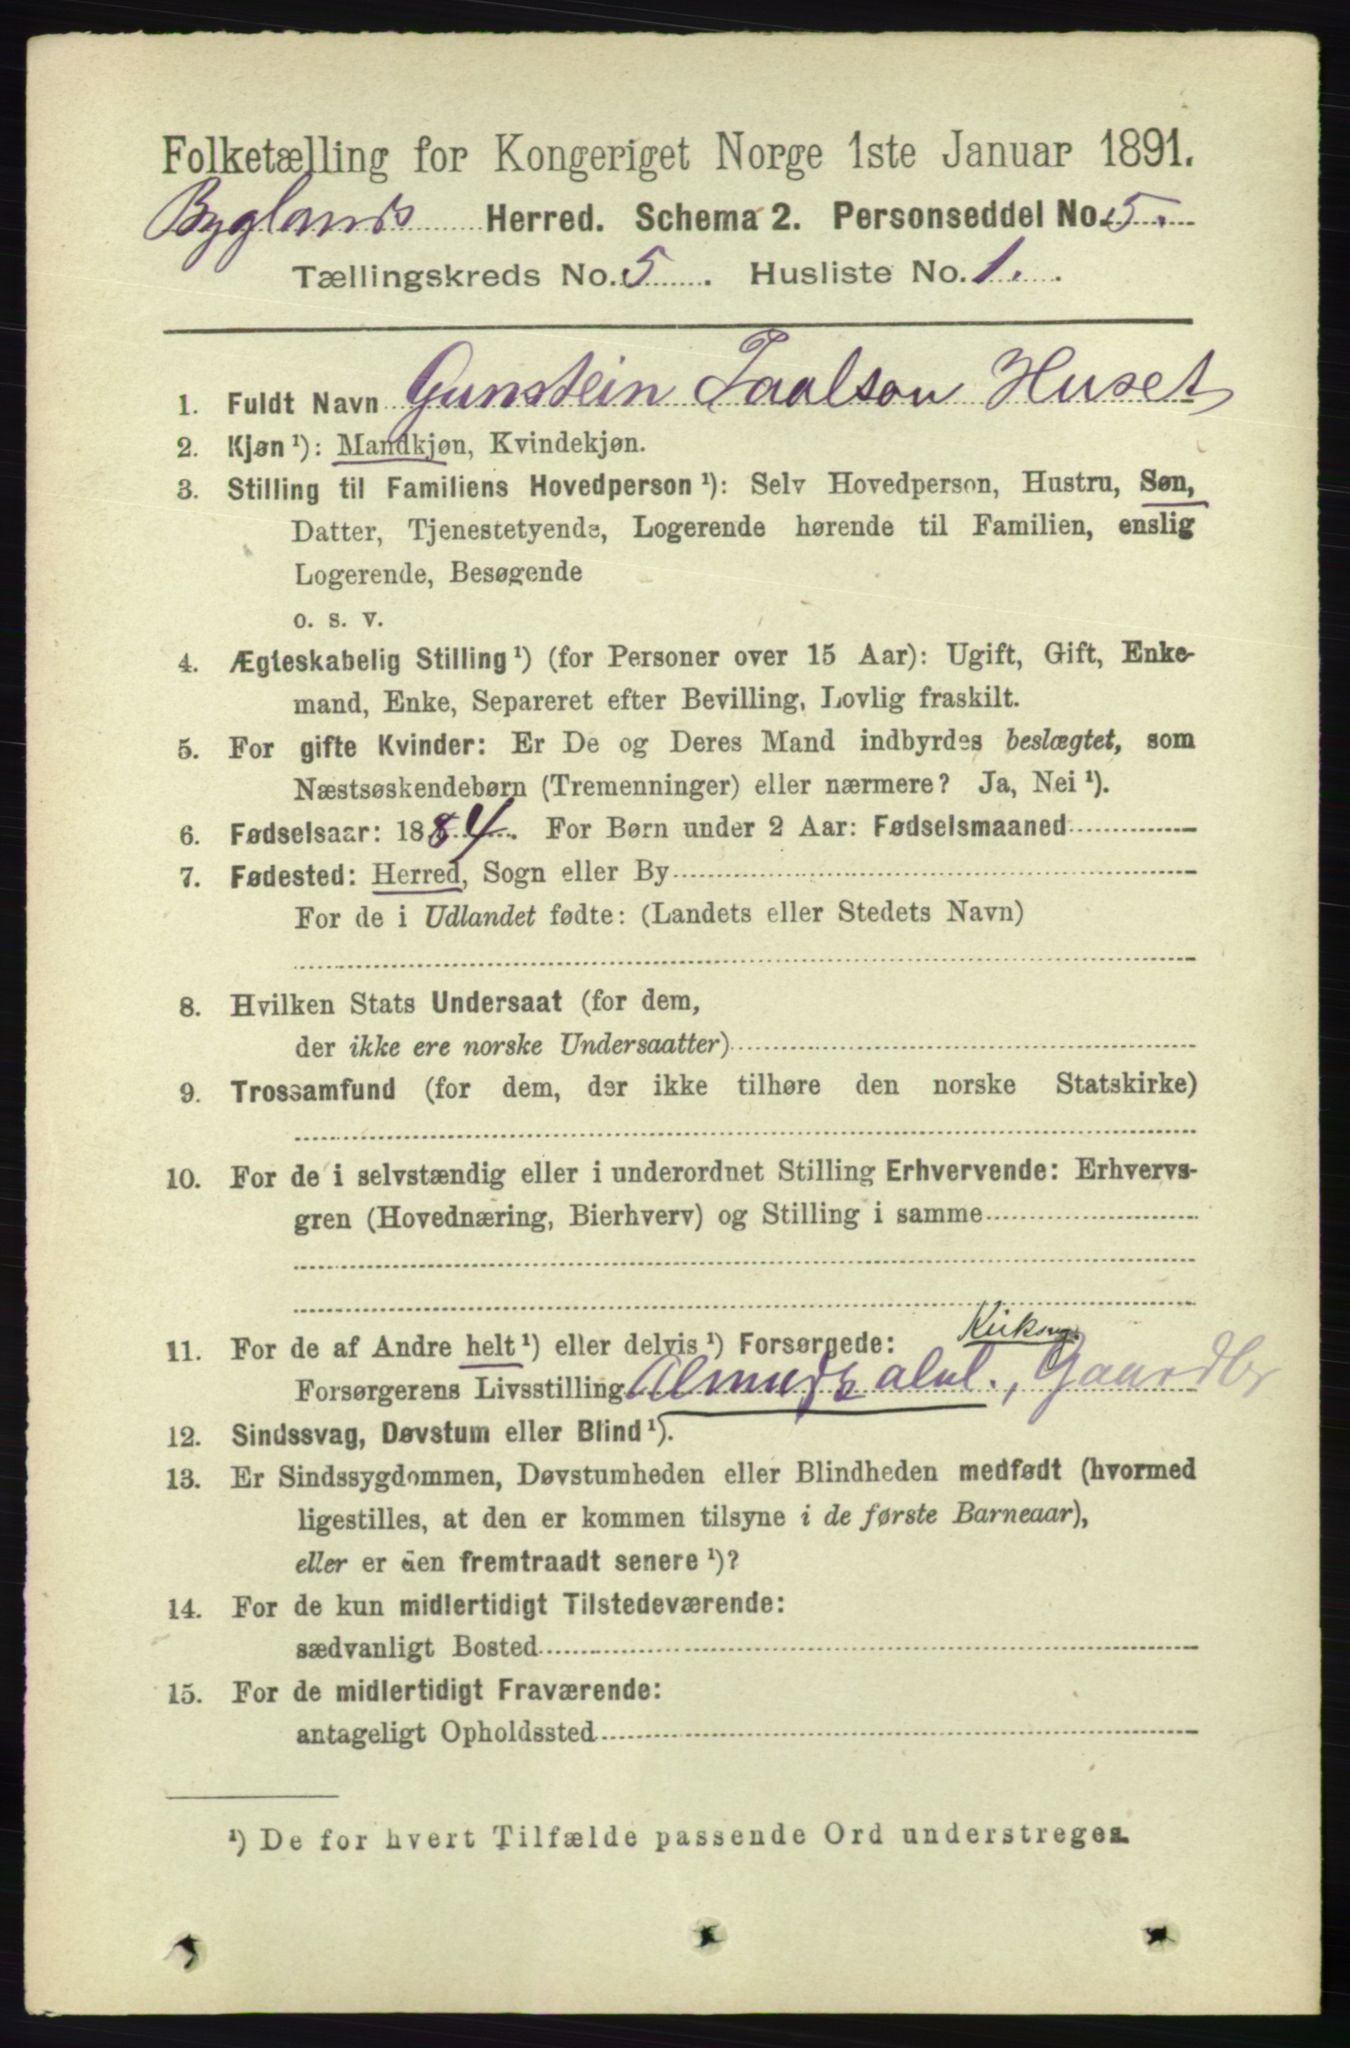 Folketælling for Kongeriget Norge 1ste Januar 1891.
Byglands Herred. Schema 2. Personseddel No. 5.
Tællingskreds No. 5. Husliste No. 1.
1. Fuldt Navn Gunstein Taalson Huset
2. Kjøn ¹): Mandkjøn, Kvindekjøn.
3. Stilling til Familiens Hovedperson ¹): Selv Hovedperson, Hustru, Søn,
Datter, Tjenestetyende, Logerende hørende til Familien, enslig
Logerende, Besøgende
o. s. v.
4. Ægteskabelig Stilling ¹) (for Personer over 15 Aar): Ugift, Gift, Enke-
mand, Enke, Separeret efter Bevilling, Lovlig fraskilt.
5. For gifte Kvinder: Er De og Deres Mand indbyrdes beslægtet, som
Næstsøskendebørn (Tremenninger) eller nærmere? Ja, Nei ¹).
6. Fødselsaar: 1884. For Børn under 2 Aar: Fødselsmaaned
7. Fødested: Herred, Sogn eller By
For de i Udlandet fødte: (Landets eller Stedets Navn)
8. Hvilken Stats Undersaat (for dem,
der ikke ere norske Undersaatter)
9. Trossamfund (for dem, der ikke tilhøre den norske Statskirke)
10. For de i selvstændig eller i underordnet Stilling Erhvervende: Erhvervs-
gren (Hovednæring, Bierhverv) og Stilling i samme
11. For de af Andre helt ¹) eller delvis ¹) Forsørgede:
Forsørgerens Livsstilling Gaardbr
12. Sindssvag, Døvstum eller Blind ¹).
13. Er Sindssygdommen, Døvstumheden eller Blindheden medfødt (hvormed
ligestilles, at den er kommen tilsyne i de første Barneaar),
eller er den fremtraadt senere ¹)?
14. For de kun midlertidigt Tilstedeværende:
sædvanligt Bosted
15. For de midlertidigt Fraværende:
antageligt Opholdssted
¹) De for hvert Tilfælde passende Ord understreges.